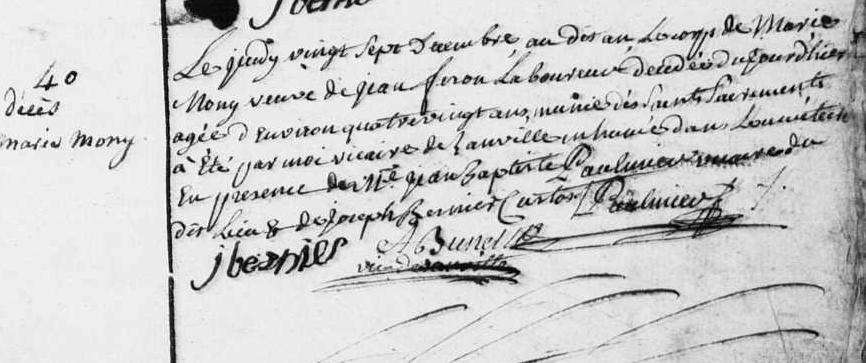 40
décès
marie mony
Le judy vingt sept Decembre, au dit an, Le corp de Marie
Mony veuve de jean feron Laboureur, décédée du jourdhier
agée d'Environ quatrevingt ans, munie des Saints Sacrements
à Eté par moi vicaire de hanville inhumée dans Le cimetiere
En presence de Mtre jean Baptiste Paulmier vicaire du
dit Lieu & de joseph Bernier Custos
Paulmier
jbernier
Brunel